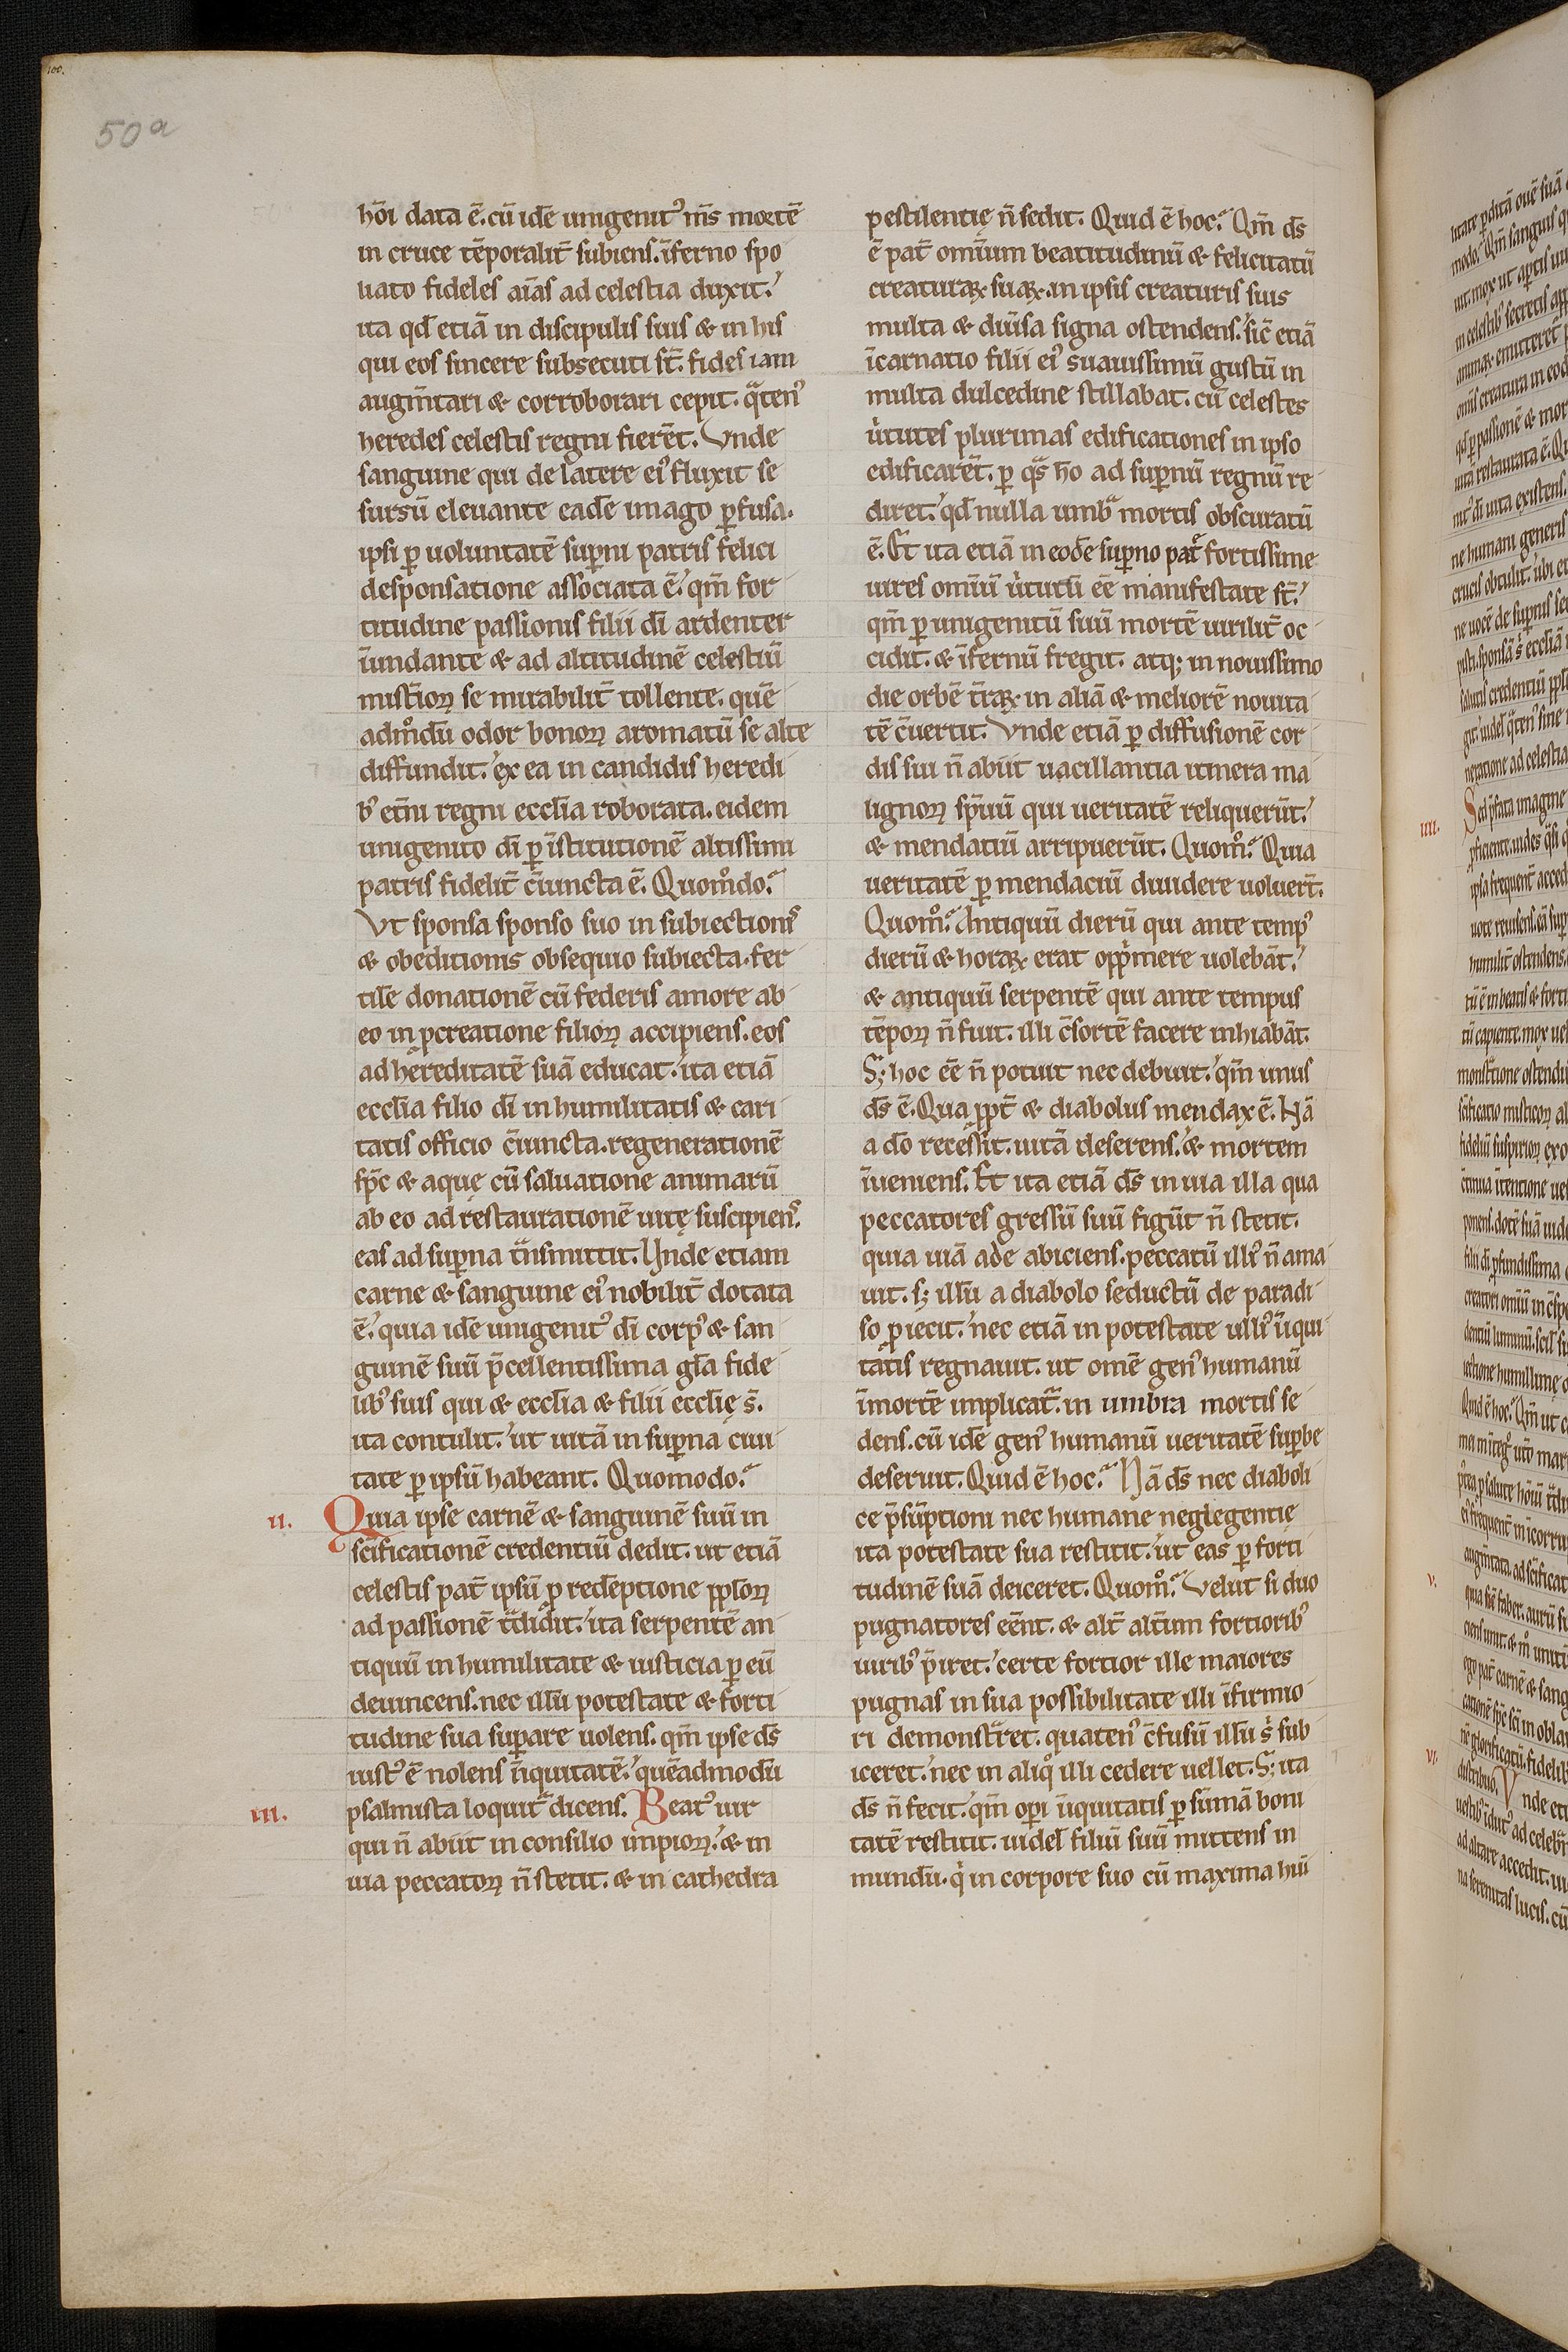 100.
50a
hōi data ē. cū idē unigenit᷒ mīs mortē
in cruce tēporalit̄ subiens. īferno spo
liato fideles aīas ad celestia duxit.
ita qd̄ etiā in discipulis suis & in his
qui eos sincere subsecuti st̄. fides iam
augm̄tari & corroborari cepit. qͣten᷒
heredes celestis regni fierēt. Vnde
sanguine qui de latere ei᷒ fluxit se
sursū eleuante eadē imago ꝑfusa.
ipsi ꝑ uoluntatē suꝑni patris felici
desponsatione associata ē. qm̄ for
titudine passionis filii dī ardenter
īundante & ad altitudinē celestiū
mist̄ioꝝ se mirabilit̄ tollente. quē
admͦdū odor bonoꝝ aromatū se alte
diffundit. ex ea in candidis heredi
b᷒ et̄ni regni eccl̄ia roborata. eidem
unigenito dī ꝑ īstitutionē altissimi
patris fidelit̄ c̄iuncta ē. Quomͦdo.
Vt sponsa sponso suo in subiectionis
& obeditionis obsequio subiecta. fer
tilē donationē cū federis amore ab
eo in ꝓcreatione filioꝝ accipiens. eos
ad hereditatē suā educat. ita etiā
eccl̄ia filio dī in humilitatis & cari
tatis officio c̄iuncta. regenerationē
sp̄c & aquę cū saluatione animarū
ab eo ad restaurationē uitę suscipiens.
eas ad suꝑna tͣnsmittit. Unde etiam
carne & sanguine ei᷒ nobilit̄ dotata
ē. quia idē unigenit᷒ dī corp᷒ & san
guinē suū p̄cellentissima gl̄a fide
lib᷒ suis qui & eccl̄ia & filii eccl̄ię s̄.
ita contulit. ut uitā in suꝑna ciui
tate ꝑ ipsū habeant. Quomodo.
II. Quia ipse carnē & sanguinē suū in
sc̄ificationē credentiū dedit. ut etiā
celestis pat̄ ipsū ꝓ redēptione ppl̄oꝝ
ad passionē tͣdidit. ita serpentē an
tiquū in humilitate & iusticia ꝑ eū
deuincens. nec illū potestate & forti
tudine sua suꝑare uolens. qm̄ ipse ds̄
iust᷒ ē nolens īiquitatē. quēadmodū
III. psalmista loquit̄ dicens. Beat᷒ uir
qui n̄ abiit in consilio impioꝝ. & in
uia peccatoꝝ n̄ stetit. & in cathedra
pestilentię n̄ sedit. Quid ē hoc. Qm̄ ds̄
ē pat̄ omīum beatitudinū & felicitatū
creaturaꝝ suaꝝ. in ipsis creaturis suis
multa & diūsa signa ostendens. sic̄ etiā
īcarnatio filii ei᷒ suauissimū gustū in
multa dulcedine stillabat. cū celestes
u̍tutes plurimas edificationes in ipso
edificarēt. ꝑ qͣs hō ad suꝑnū regnū re
diret. qd̄ nulla umbͣ mortis obscuratū
ē. Et ita etiā in eodē suꝑno pat̄ fortissime
uires omiū u̍tutū eē manifestate st̄.
qm̄ ꝑ unigenitū suū mortē uirilit̄ oc
cidit. & īfernū fregit. atq; in nouissimo
die orbē t̄raꝝ in aliā & meliorē nouita
tē c̄uertit. Vnde etiā ꝑ diffusionē cor
dis sui n̄ abiit uacillantia itinera ma
lignoꝝ sp̄uū qui ueritatē reliquerūt.
& mendatiū arripuerūt. Quomͦ. Quia
ueritatē ꝑ mendaciū diuidere uoluert̄.
Quomͦ. Antiquū dierū qui ante temp᷒
dierū & horaꝝ erat opp̍mere uolebāt.
& antiquū serpentē qui ante tempus
tēpoꝝ n̄ fuit. illi c̄sortē facere inhiabāt.
S; hoc eē n̄ potuit nec debuit. qm̄ unus
ds̄ ē. Qua ꝓpt̄ & diabolus mendax ē. Nā
a dō recessit. uitā deserens. & mortem
īueniens. Et ita etiā ds̄ in uia illa qua
peccatores gressū suū figūt n̄ stetit.
quia uiā ade abiciens. peccatū illi᷒ n̄ ama
uit. s; illū a diabolo seductū de paradi
so ꝓiecit. nec etiā in potestate ulli᷒ īiqui
tatis regnauit. ut omē gen᷒ humanū
īmortē implicatͣ. in umbra mortis se
dens. cū idē gen᷒ humanū ueritatē suꝑbe
deseruit. Quid ē hoc. Nā ds̄ nec diaboli
ce p̄sūptioni nec humane neglegentię
ita potestate sua restitit. ut eas ꝑ forti
tudinē suā deiceret. Quomͦ. Velut si duo
pugnatores eēnt. & alt̄ alt̄um fortiorib᷒
uirib᷒ p̄iret. certe fortior ille maiores
pugnas in sua possibilitate illi īfirmio
ri demonstͣret. quaten᷒ c̄fusū illū s̍ sub
iceret. nec in aliqͦ illi cedere uellet. S; ita
ds̄ n̄ fecit. qm̄ opi īiquitatis ꝑ sūmā boni
tatē restitit. uidel̄ filiū suū mittens in
mundū. q̍ in corpore suo cū maxima hū
IIII.
V.
VI.